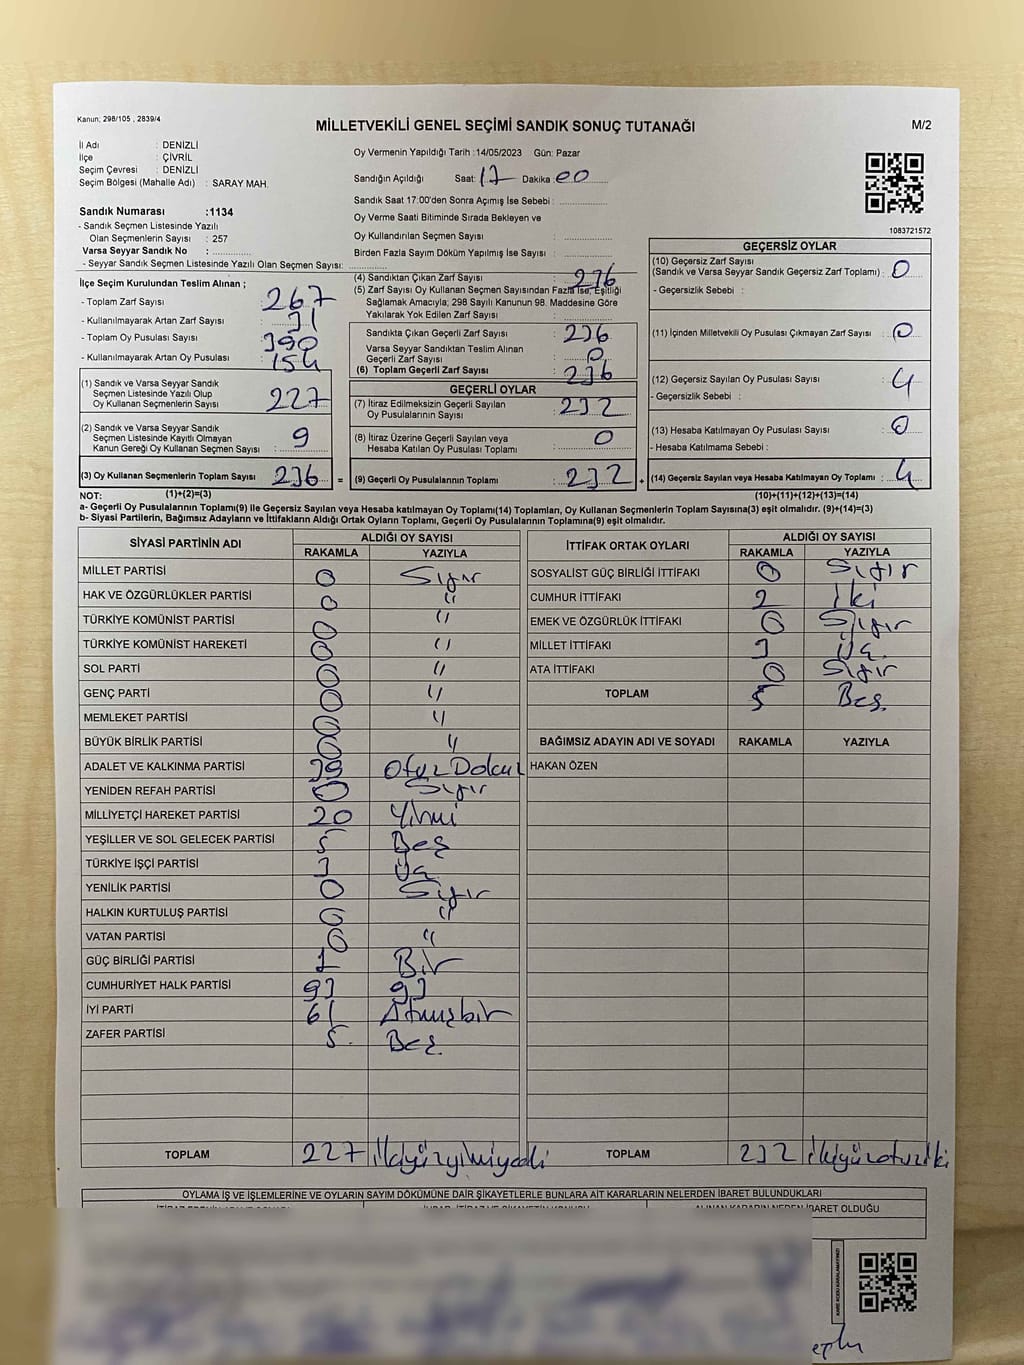 Kanun; 298/105 , 2839/4
MİLLETVEKİLİ GENEL SEÇİMİ SANDIK SONUÇ TUTANAĞI
M/2
İl Adı : DENİZLİ
İlçe : ÇİVRİL
Seçim Çevresi : DENİZLİ
Seçim Bölgesi (Mahalle Adı) : SARAY MAH.
Sandık Numarası :1134
- Sandık Seçmen Listesinde Yazılı
Olan Seçmenlerin Sayısı : 257
Varsa Seyyar Sandık No :
- Seyyar Sandık Seçmen Listesinde Yazılı Olan Seçmen Sayısı:
Oy Vermenin Yapıldığı Tarih :14/05/2023 Gün: Pazar
Sandığın Açıldığı Saat: 17 Dakika: 00
Sandık Saat 17:00'den Sonra Açımış İse Sebebi :
Oy Verme Saati Bitiminde Sırada Bekleyen ve
Oy Kullandırılan Seçmen Sayısı :
Birden Fazla Sayım Döküm Yapılmış İse Sayısı :
1083721572
İlçe Seçim Kurulundan Teslim Alınan ;
- Toplam Zarf Sayısı : 267
- Kullanılmayarak Artan Zarf Sayısı : 31
- Toplam Oy Pusulası Sayısı : 390
- Kullanılmayarak Artan Oy Pusulası : 154
(1) Sandık ve Varsa Seyyar Sandık
Seçmen Listesinde Yazılı Olup
Oy Kullanan Seçmenlerin Sayısı : 227
(2) Sandık ve Varsa Seyyar Sandık
Seçmen Listesinde Kayıtlı Olmayan
Kanun Gereği Oy Kullanan Seçmen Sayısı : 9
(3) Oy Kullanan Seçmenlerin Toplam Sayısı : 236
(4) Sandıktan Çıkan Zarf Sayısı : 236
(5) Zarf Sayısı Oy Kullanan Seçmen Sayısından Fazla İse, Eşitliği
Sağlamak Amacıyla; 298 Sayılı Kanunun 98. Maddesine Göre
Yakılarak Yok Edilen Zarf Sayısı :
Sandıkta Çıkan Geçerli Zarf Sayısı : 236
Varsa Seyyar Sandıktan Teslim Alınan
Geçerli Zarf Sayısı : 0
(6) Toplam Geçerli Zarf Sayısı : 236
GEÇERLİ OYLAR
(7) İtiraz Edilmeksizin Geçerli Sayılan
Oy Pusulalarının Sayısı : 232
(8) İtiraz Üzerine Geçerli Sayılan veya
Hesaba Katılan Oy Pusulası Toplamı : 0
= (9) Geçerli Oy Pusulalarının Toplamı : 232 +
GEÇERSİZ OYLAR
(10) Geçersiz Zarf Sayısı
(Sandık ve Varsa Seyyar Sandık Geçersiz Zarf Toplamı) : 0
- Geçersizlik Sebebi :
(11) İçinden Milletvekili Oy Pusulası Çıkmayan Zarf Sayısı : 0
(12) Geçersiz Sayılan Oy Pusulası Sayısı : 4
- Geçersizlik Sebebi :
(13) Hesaba Katılmayan Oy Pusulası Sayısı : 0
- Hesaba Katılmama Sebebi :
(14) Geçersiz Sayılan veya Hesaba Katılmayan Oy Toplamı : 4
NOT: (1)+(2)=(3) (10)+(11)+(12)+(13)=(14)
a- Geçerli Oy Pusulalarının Toplamı(9) ile Geçersiz Sayılan veya Hesaba katılmayan Oy Toplamı(14) Toplamları, Oy Kullanan Seçmenlerin Toplam Sayısına(3) eşit olmalıdır. (9)+(14)=(3)
b- Siyasi Partilerin, Bağımsız Adayların ve İttifakların Aldığı Ortak Oyların Toplamı, Geçerli Oy Pusulalarının Toplamına(9) eşit olmalıdır.
SİYASİ PARTİNİN ADI ALDIĞI OY SAYISI
RAKAMLA YAZIYLA
MİLLET PARTİSİ 0 Sıfır
HAK VE ÖZGÜRLÜKLER PARTİSİ 0 "
TÜRKİYE KOMÜNİST PARTİSİ 0 "
TÜRKİYE KOMÜNİST HAREKETİ 0 "
SOL PARTİ 0 "
GENÇ PARTİ 0 "
MEMLEKET PARTİSİ 0 "
BÜYÜK BİRLİK PARTİSİ 0 "
ADALET VE KALKINMA PARTİSİ 39 Otuz Dokuz
YENİDEN REFAH PARTİSİ 0 Sıfır
MİLLİYETÇİ HAREKET PARTİSİ 20 Yirmi
YEŞİLLER VE SOL GELECEK PARTİSİ 5 Beş
TÜRKİYE İŞÇİ PARTİSİ 3 Üç
YENİLİK PARTİSİ 0 Sıfır
HALKIN KURTULUŞ PARTİSİ 0 "
VATAN PARTİSİ 0 "
GÜÇ BİRLİĞİ PARTİSİ 1 Bir
CUMHURİYET HALK PARTİSİ 93 93
İYİ PARTİ 61 Atmışbir
ZAFER PARTİSİ 5 Beş
TOPLAM 227 ikiyüzyirmiyedi
İTTİFAK ORTAK OYLARI ALDIĞI OY SAYISI
RAKAMLA YAZIYLA
SOSYALİST GÜÇ BİRLİĞİ İTTİFAKI 0 Sıfır
CUMHUR İTTİFAKI 2 İki
EMEK VE ÖZGÜRLÜK İTTİFAKI 0 Sıfır
MİLLET İTTİFAKI 3 Üç
ATA İTTİFAKI 0 Sıfır
TOPLAM 5 Beş
BAĞIMSIZ ADAYIN ADI VE SOYADI RAKAMLA YAZIYLA
HAKAN ÖZEN
TOPLAM 232 ikiyüzotuziki
OYLAMA İŞ VE İŞLEMLERİNE VE OYLARIN SAYIM DÖKÜMÜNE DAİR ŞİKAYETLERLE BUNLARA AİT KARARLARIN NELERDEN İBARET BULUNDUKLARI
ALINAN KARARIN NEDEN İBARET OLDUĞU
KARE KODU KARALAMAYINIZ!